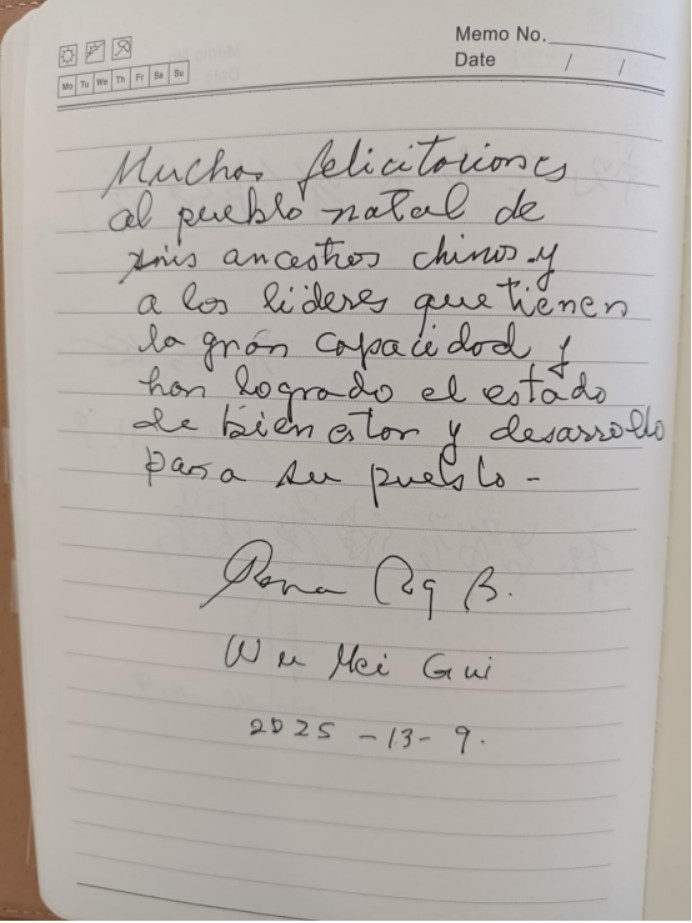 Memo No.
Date / /
Mo Tu We Th Fr Sa Su
Muchas felicitaciones
al pueblo natal de
mis ancestros chinos y
a los lideres que tienen
la gran capacidad y
han logrado el estado
de bien estar y desarrollo
para su pueblo -
B.
Wu Mei Gui
2025 - 13 - 9.